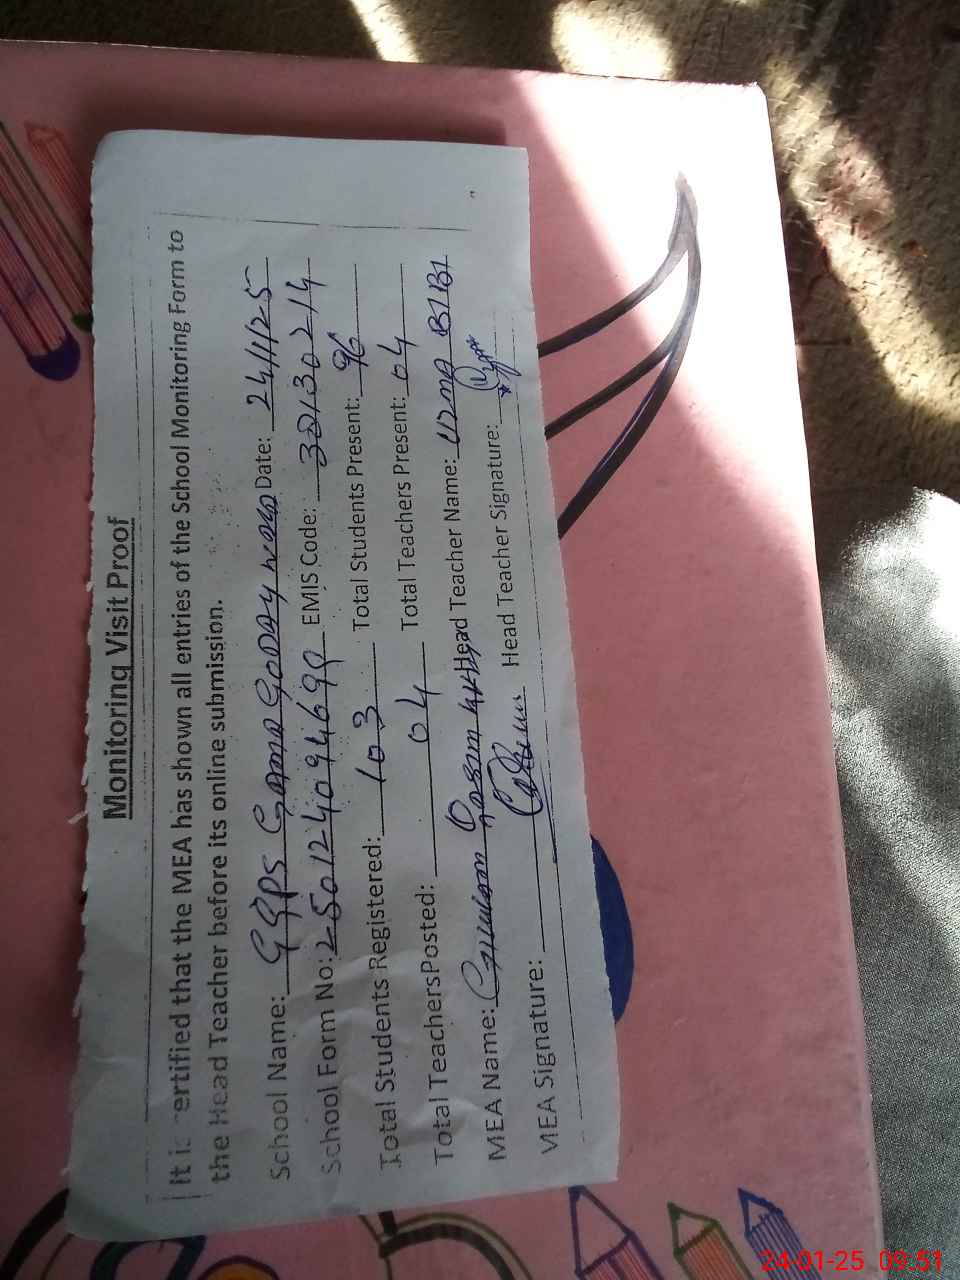 Monitoring Visit Proof
It is certified that the MEA has shown all entries of the School Monitoring Form to
the Head Teacher before its online submission.
School Name: GGPS Date: 24/1/25
School Form No: EMIS Code:
Total Students Registered: 103 Total Students Present: 96
Total TeachersPosted: 04 Total Teachers Present: 04
MEA Name: Head Teacher Name: Uzma BIBI
MEA Signature: Head Teacher Signature:
24-01-25 09:51